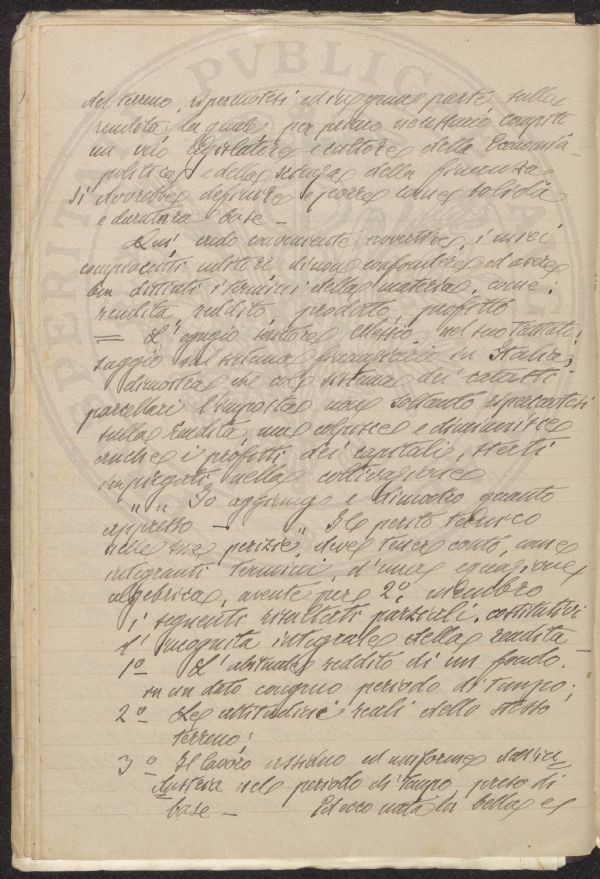 del terreno, ripercuotesi ed in gran parte, sulla
rendita, la quale, per primo necessario compito
un vero legislatore, e cultore della Economia
politica e della scienza della finanza
si dovrebbe definire e porre come solida
e duratura base —
Qui credo conveniente avvertire, i miei
compiacenti lettori di non confondere ed avere
ben distinti i termini della materia, come:
rendita, reddito, prodotto, profitto
= L'egregio autore Alessio, nel suo Trattato;
saggio sul sistema finanziario in Italia;
dimostra che col sistema dei catasti
parcellari l'imposta non soltanto ripercuotesi
sulla rendita, ma colpisce e diminuisce
anche i profitti dei capitali, sterti
impiegati nella coltivazione
" " Io aggiungo e dimostro quanto
appresso — " Il perito tecnico
nelle sue perizie, deve tener conto, come
integranti termini, d'una equazione
algebrica, avente per 2.o membro
i seguenti risultati parziali, costitutivi
l'incognita integrale della rendita —
1o L'attuale reddito di un fondo.
in un dato congruo periodo di tempo;
2o Le attitudini reali dello stesso
terreno;
3o Il lavoro assiduo ed uniforme dell'in
dustria nel periodo di tempo, preso di
base — Ed ecco nata la bella e
PVBLIC